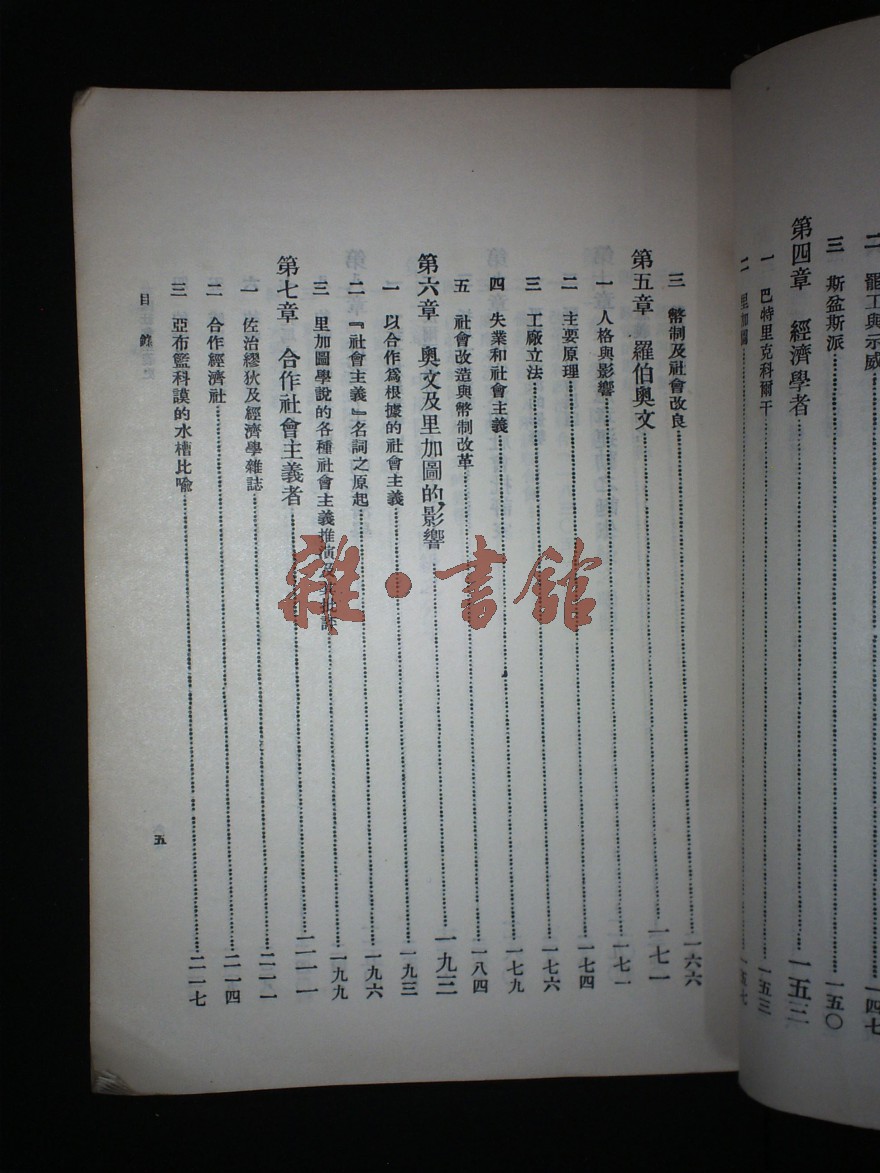 二 罷工與示威…一四七
三 斯盆斯派…一五〇
第四章 經濟學者…一五三
一 巴特里克科爾干…一五三
二 里加圖…一五七
三 幣制及社會改良…一六六
第五章 羅伯奧文…一七一
一 人格與影響…一七一
二 主要原理…一七四
三 工廠立法…一七六
四 失業和社會主義…一七九
五 社會改造與幣制改革…一八四
第六章 奧文及里加圖的影響…一九三
一 以合作爲根據的社會主義…一九三
二 『社會主義』名詞之原起…一九六
三 里加圖學說的各種社會主義推演及其批評…一九九
第七章 合作社會主義者…二一一
一 佐治繆狄及經濟學雜誌…二一一
二 合作經濟社…二一四
三 亞布藍科謨的水槽比喻…二一七
目錄
五
雜·書館